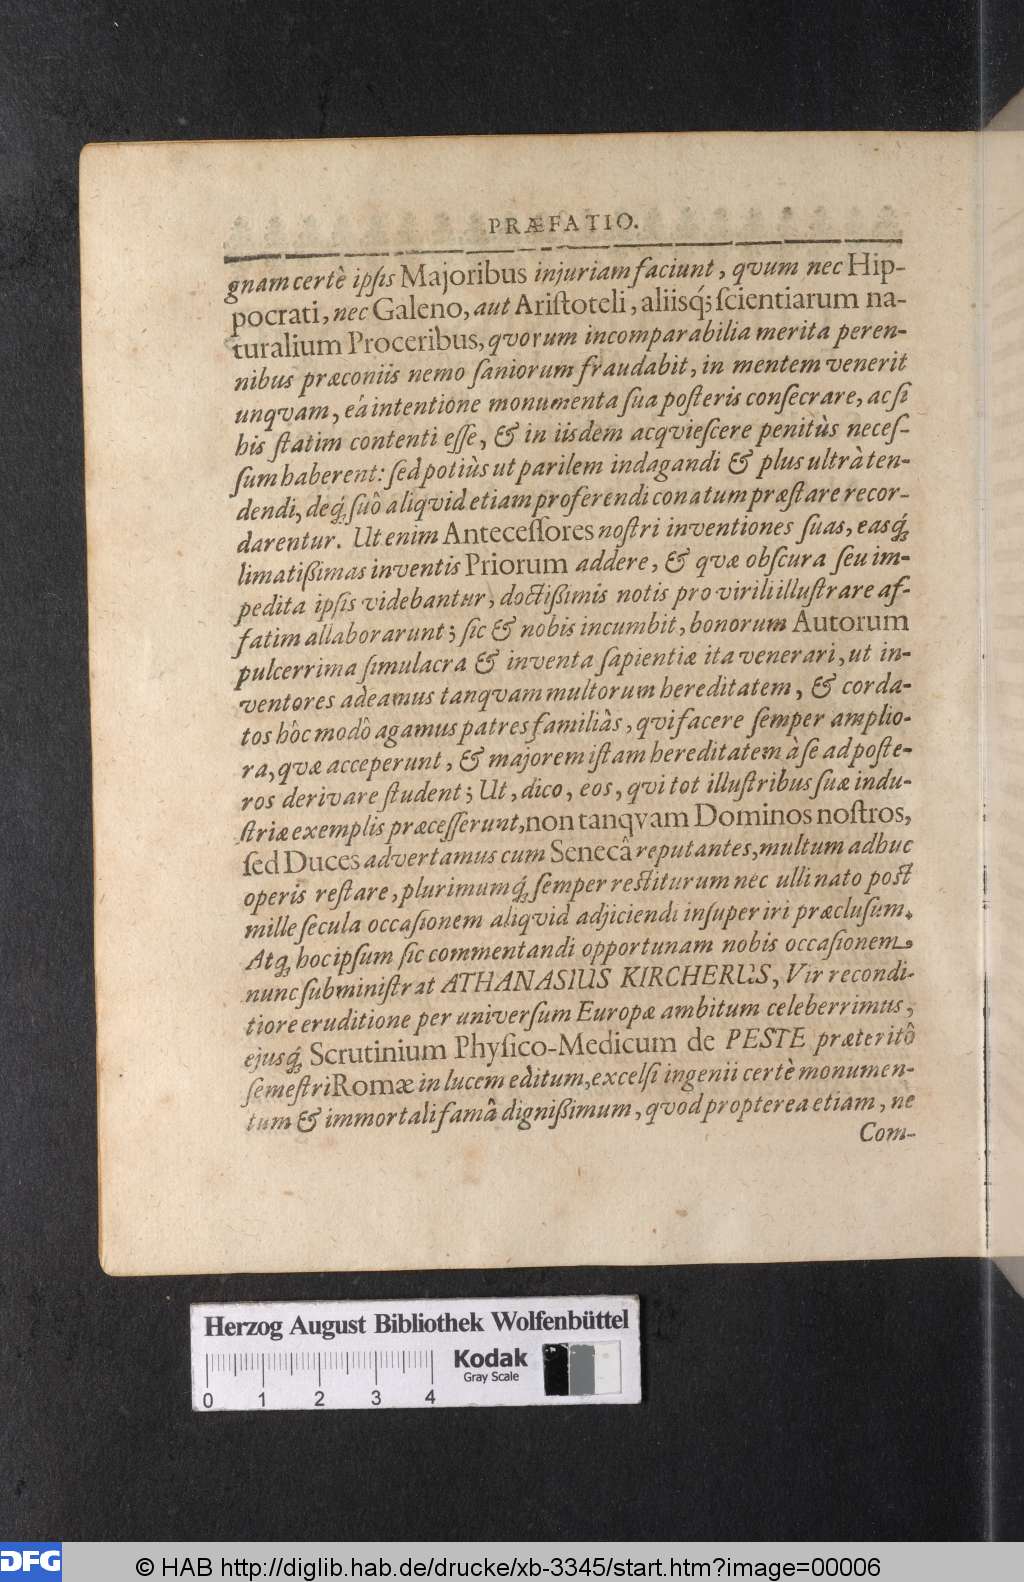 PRÆFATIO.
gnam certè ipſis Majoribus injuriam faciunt, qvum nec Hip-
pocrati, nec Galeno, aut Ariſtoteli, aliisq́; ſcientiarum na-
turalium Proceribus, qvorum incomparabilia merita peren-
nibus præconiis nemo ſaniorum fraudabit, in mentem venerit
unqvam, eâ intentione monumenta ſua poſteris conſecrare, ac ſi
his ſtatim contenti eſſe, & in iisdem acqvieſcere penitùs neceſ-
ſum haberent: ſed potiùs ut parilem indagandi & plus ultrà ten-
dendi, deq́; ſuô aliqvid etiam proferendi conatum præſtare recor-
darentur. Ut enim Anteceſſores noſtri inventiones ſuas, easq́;
limatißimas inventis Priorum addere, & qvæ obſcura ſeu im-
pedita ipſis videbantur, doctißimis notis pro virili illuſtrare af-
fatim allaborarunt; ſic & nobis incumbit, bonorum Autorum
pulcerrima ſimulacra & inventa ſapientiæ ita venerari, ut in-
ventores adeamus tanqvam multorum hereditatem, & corda-
tos hôc modô agamus patres familiâs, qvi facere ſemper amplio-
ra, qvæ acceperunt, & majorem iſtam hereditatem à ſe ad poſte-
ros derivare ſtudent; Ut, dico, eos, qvi tot illuſtribus ſuæ indu-
ſtriæ exemplis præceſſerunt, non tanqvam Dominos noſtros,
ſed Duces advertamus cum Senecâ reputantes, multum adhuc
operis reſtare, plurimumq́; ſemper reſtiturum nec ulli nato poſt
mille ſecula occaſionem aliqvid adjiciendi inſuper iri præcluſum.
Atq́; hoc ipſum ſic commentandi opportunam nobis occaſionem
nunc ſubminiſtrat ATHANASIUS KIRCHERUS, Vir recondi-
tiore eruditione per univerſum Europæ ambitum celeberrimus,
ejusq́; Scrutinium Phyſico-Medicum de PESTE præteritô
ſemeſtri Romæ in lucem editum, excelſi ingenii certè monumen-
tum & immortali famâ dignißimum, qvod propterea etiam, ne
Com-
Herzog August Bibliothek Wolfenbüttel
Kodak
Gray Scale
0 1 2 3 4
DFG
© HAB http://diglib.hab.de/drucke/xb-3345/start.htm?image=00006